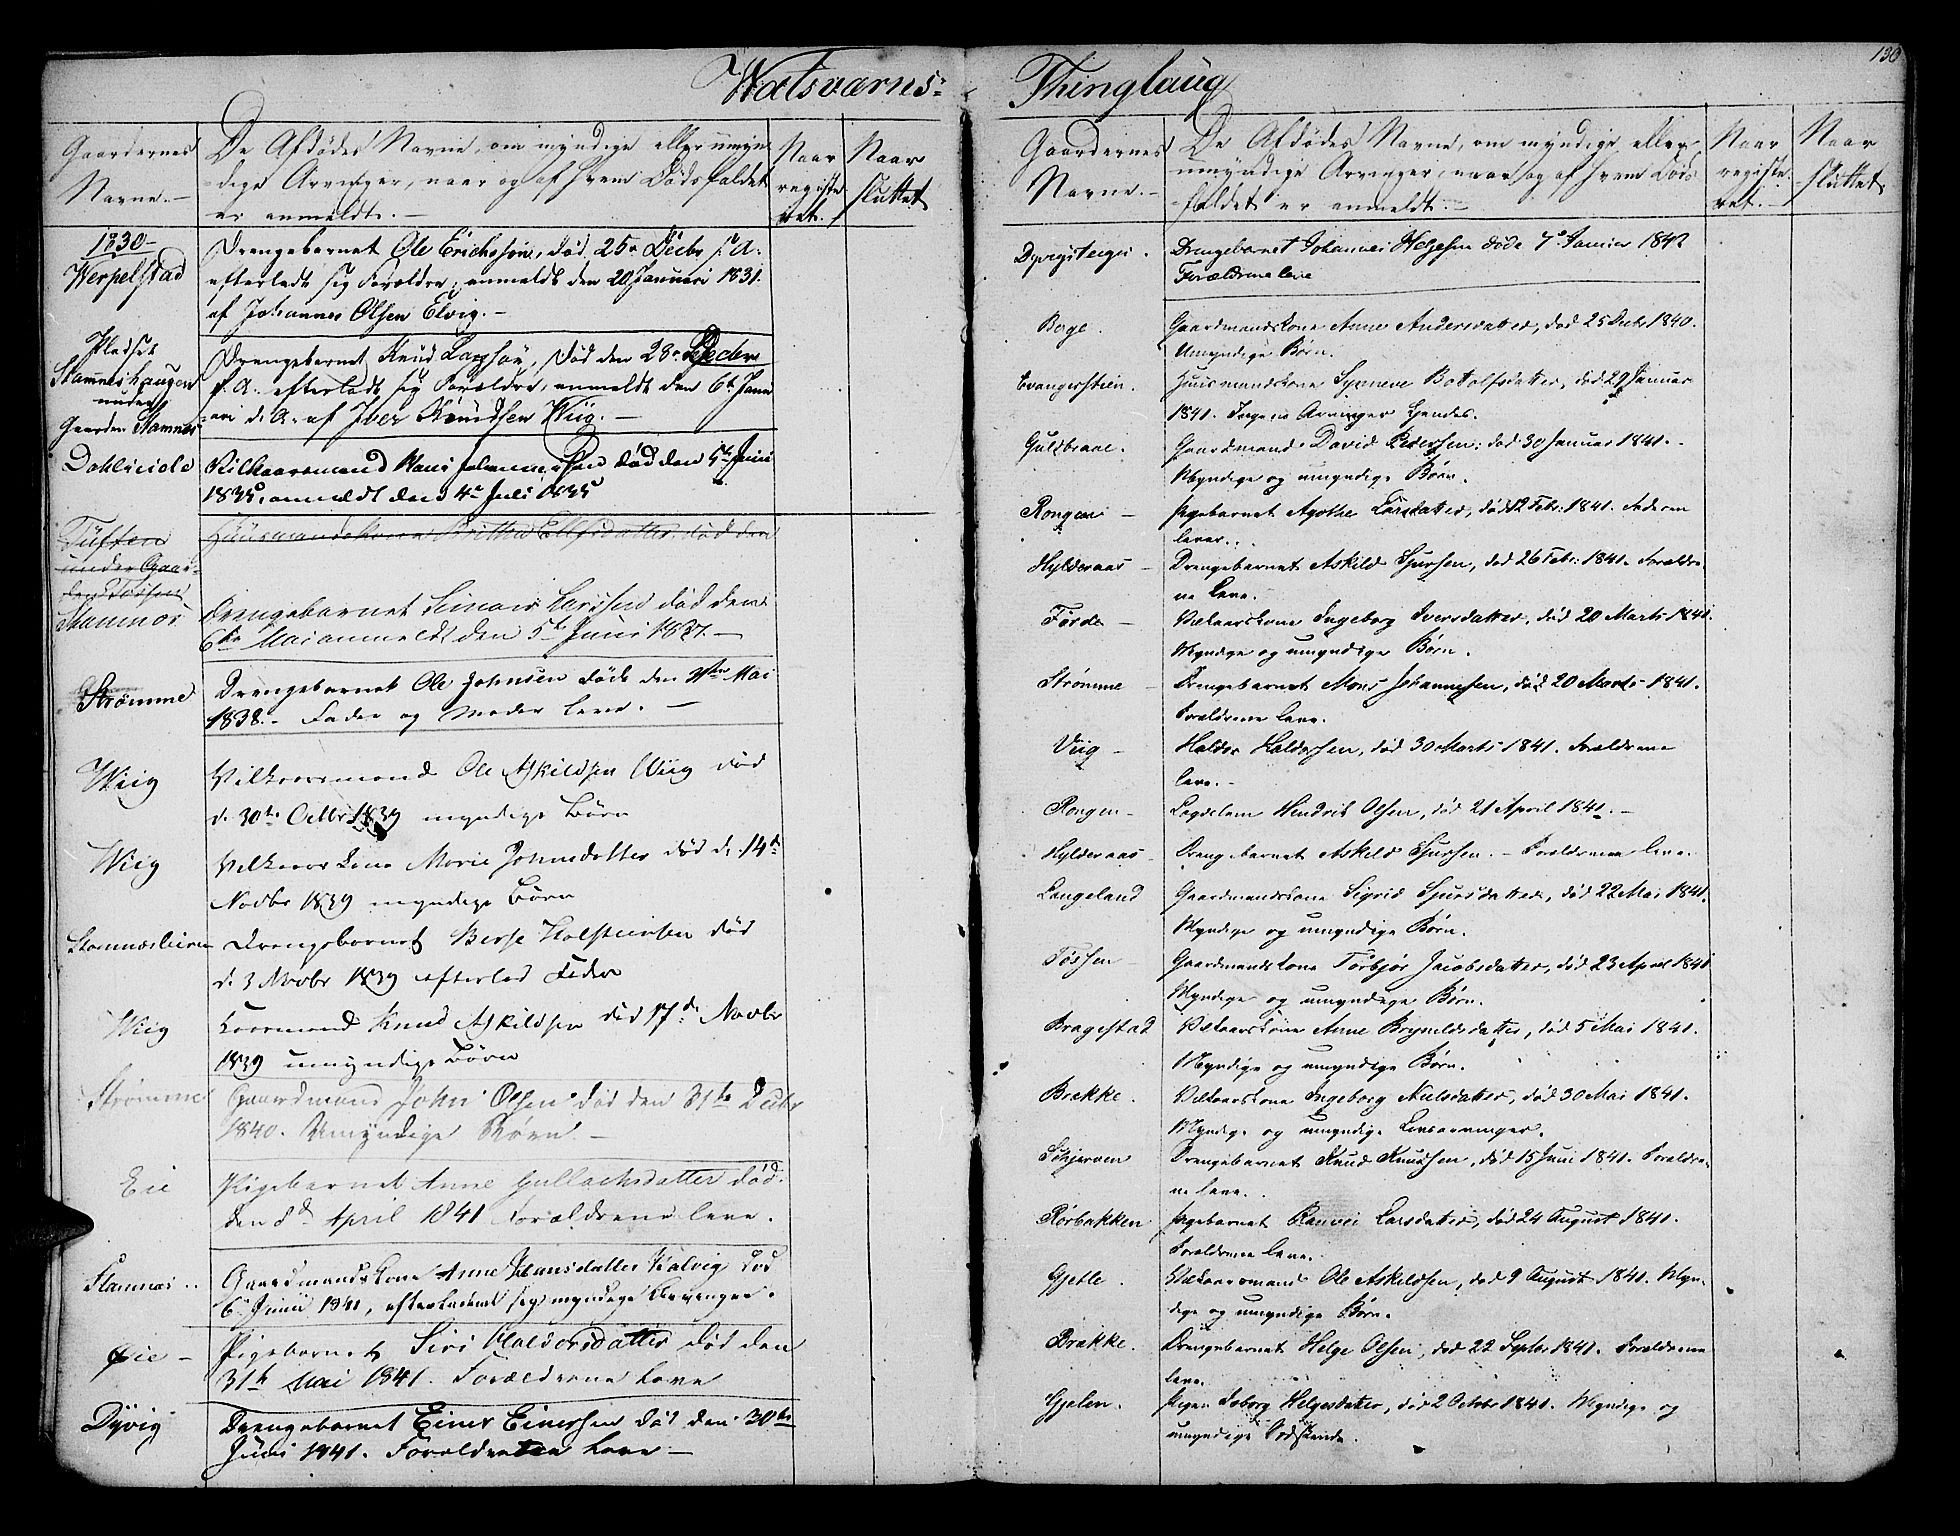 130
Watsværns- Thinglaug
Gaardernes Navne.-
De Afdødes Navne, om myndige eller umyn-
dige Arvinger, naar og af hvem Dødsfaldet
er anmeldt.-
Naar registe ret.-
Naar sluttet
1830-
Werpelstad
Drengebarnet Ole Erichsøn, død 25de Decbr f. A.
efterladt sig Forældre, anmeldt den 20 Januari 1831.
af Johannes Olsen Elvig.-
Pladset
Stamneshaugen
under
Gaarden Stamnes
Drengebarnet Knud, død den 28de Decbr
f. A. efterladt sig Forældre, anmeldt den 6te Janu
ari d. A. af Iver Knudsen Wiig.-
Vilkaarsmand Hans Johannessen død den 5te Juni
1835, anmeldt den 4de Juli 1835
Tuften
under Gaar-
den Tøssen
Huusmandskonen Britha Ellefsdatter død den
Stamnes
Drengebarnet Simon Larssen død den
6te Mai anmeldt den 5te Juni 1837.-
Strømme
Drengebarnet Ole Johnsen døde den Mai
1838.- Fader og Moder leve.-
Wiig
Vilkaarsmand Ole Askildsen Wiig død
d. 30te Octbr 1839 myndige Børn
Wiig
Vilkaarskone Marie Johnsdatter død d. 14de
Novbr 1839 myndige Børn
Drengebarnet død
d. 3 Novbr 1839 efterlod Fader
Wiig
Knud Askildsen død 17de Novbr
1839 umyndige Børn
Strømme
Gaardmand John Olsen død den 31te Decbr
1840. Umyndige Børn.-
Eie
Pigebarnet Anne Gullachsdatter død.
den 8de April 1841 Forældrene leve.
Stamnes
Gaardmandskone Anne Hansdatter død
6te Junii 1841, efterladent sig myndige Arvinger.
Øie -
Pigebarnet Siri Haldorsdatter død den
31te Mai 1841. Forældrene Leve
Dyvig
Drengebarnet Einer Einersen død den 30te
Juni 1841. Forældrene Leve-
Gaardernes Navne.-
De Afdødes Navne, om myndige eller
umyndige Arvinger, naar og af hvem Døds
faldet er anmeldt.-
Naar registe ret.-
Naar sluttet
Drengebarnet Johannes Helgesen døde 7de Januar 1842
Forældrene leve
Boge.
Gaardmandskone Anne Andersdatter, død 25 Decbr 1840.
Umyndige Børn.
Evangerstien.
Huusmandskone Synneve Botolfsdatter, død 29 Januar
1841. Ingen Arvinger kjendes.
Guldbraae.
Gaardmand David Pedersen, død 30 Januar 1841.-
Myndige og umyndige Børn.
Rongen -
Pigebarnet Agathe Larsdatter, død 12 Febr: 1841. Faderen
lever.
Hylderaas -
Drengebarnet Askild Sjursen, død 26 Febr: 1841. Forældre-
ne Leve.
Førde -
Vilkaarskone Ingeborg Iversdatter, død 20 Marts 1841.
Myndige og umyndige Børn.
Strømme -
Drengebarnet Mons Johannesen, død 20 Marts 1841.
Forældrene leve.
Viig -
Haldor Haldorsen, død 30 Marts 1841. Forældrene
leve.-
Rongen -
Lægdslem Hendrik Olsen, død 21 April 1841.-
Hylderaas -
Drengebarnet Askild Sjursen.- Forældrene leve.
Langeland
Gaardmandskone Sigrid Sjursdatter, død 22 Mai 1841.
Myndige og umyndige Børn.
Tøssen -
Gaardmandskone Torbjør Jacobsdatter, død 23 April 1841
Myndige og umyndige Børn.
Bragestad
Vilkaarskone Anne Brynildsdatter, død 5 Mai 1841.
Myndige og umyndige Børn.
Brække.
Vilkaarskone Ingeborg Nielsdatter, død 30 Mai 1841.
Myndige og umyndige Livsarvinger.
Drengebarnet Knud Knudsen, død 15 Juni 1841. Forældre-
ne leve.
Rørbakken
Pigebarnet Ranvei Larsdatter, død 24 August 1841.
Forældrene leve.
Gjelle.
Vilkaarsmand Ole Askildsen, død 9 August 1841. Myn-
dige og umyndige Børn.
Brække.
Drengebarnet Helge Olsen, død 22 Septbr 1841. Forældrene
leve.
Pigen Helgesdatter, død 2 Octbr 1841. Myndige og
umyndige Sødskende.